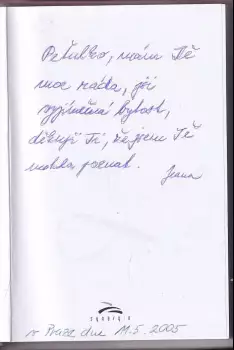 Petulko, mám Tě
moc ráda, jsi
výjimečná bytost,
děkuji Ti, že jsem Tě
mohla poznat.
Jana
synergie
v Praze dne 11.5.2005